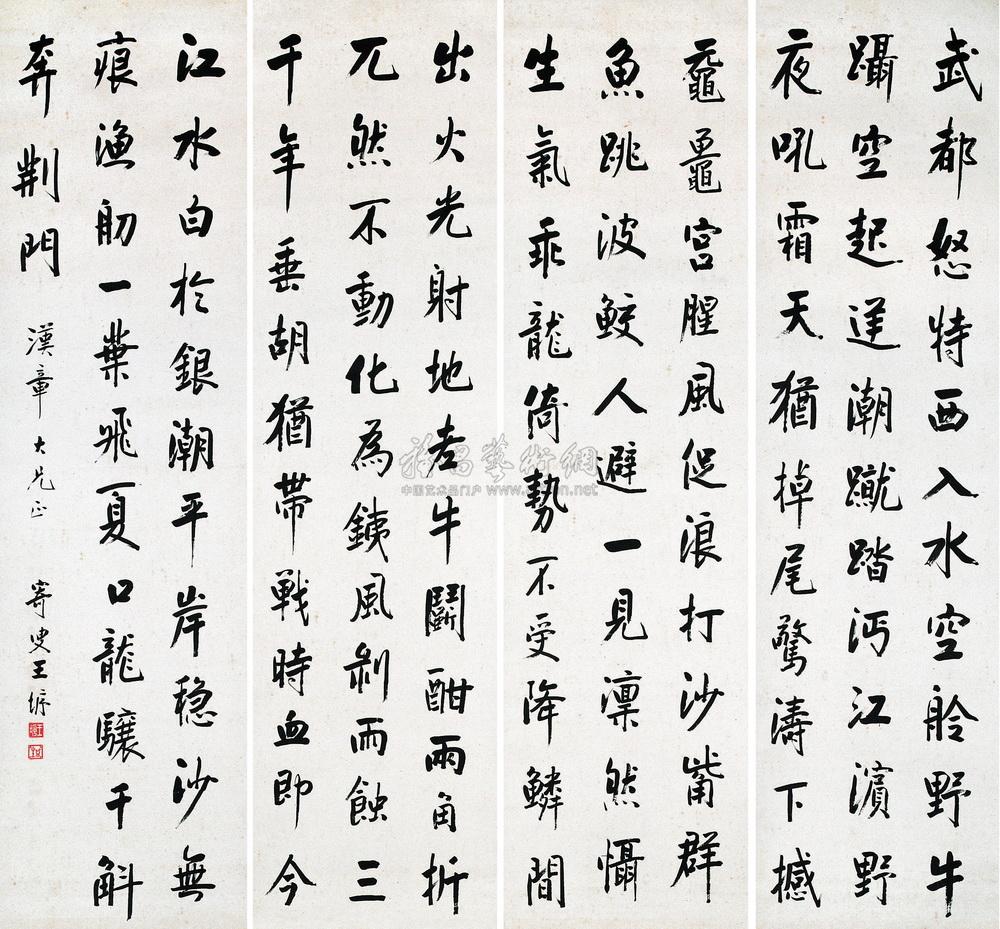 武都怒特西入水空舲野牛
躡空起逆潮蹴踏沔江濱野
夜吼霜天猶掉尾驚濤下撼
黿鼉宮腥風促浪打沙觜群
魚跳波鮫人避一見凜然懾
生氣乖龍倚勢不受降鱗間
出火光射地老牛鬭酣兩角折
兀然不動化為鐵風剝雨蝕三
千年垂胡猶帶戰時血即今
江水白於銀潮平岸穩沙無
痕漁舠一葉飛夏口龍驤千斛
奔荆門
漢章大兄正
寄叟王